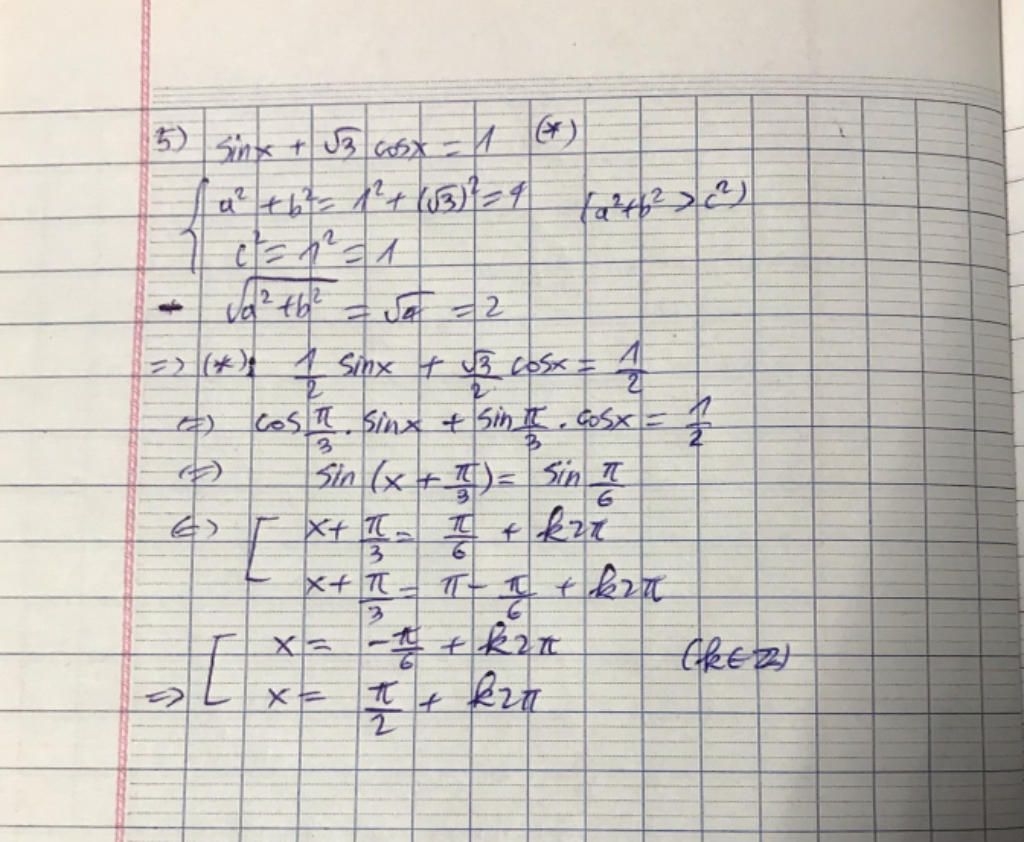 5) sinx + √3 cosx = 1 (*)
{ a² + b² = 1² + (√3)² = 4 (a²+b² > c²)
c² = 1² = 1
- √(a² + b²) = √4 = 2
=> (*): 1/2 sinx + √3/2 cosx = 1/2
<=> cos π/3 . sinx + sin π/3 . cosx = 1/2
<=> sin (x + π/3) = sin π/6
<=> [ x + π/3 = π/6 + k2π
x + π/3 = π - π/6 + k2π
[ x = -π/6 + k2π (k ∈ ℤ)
=> x = π/2 + k2π